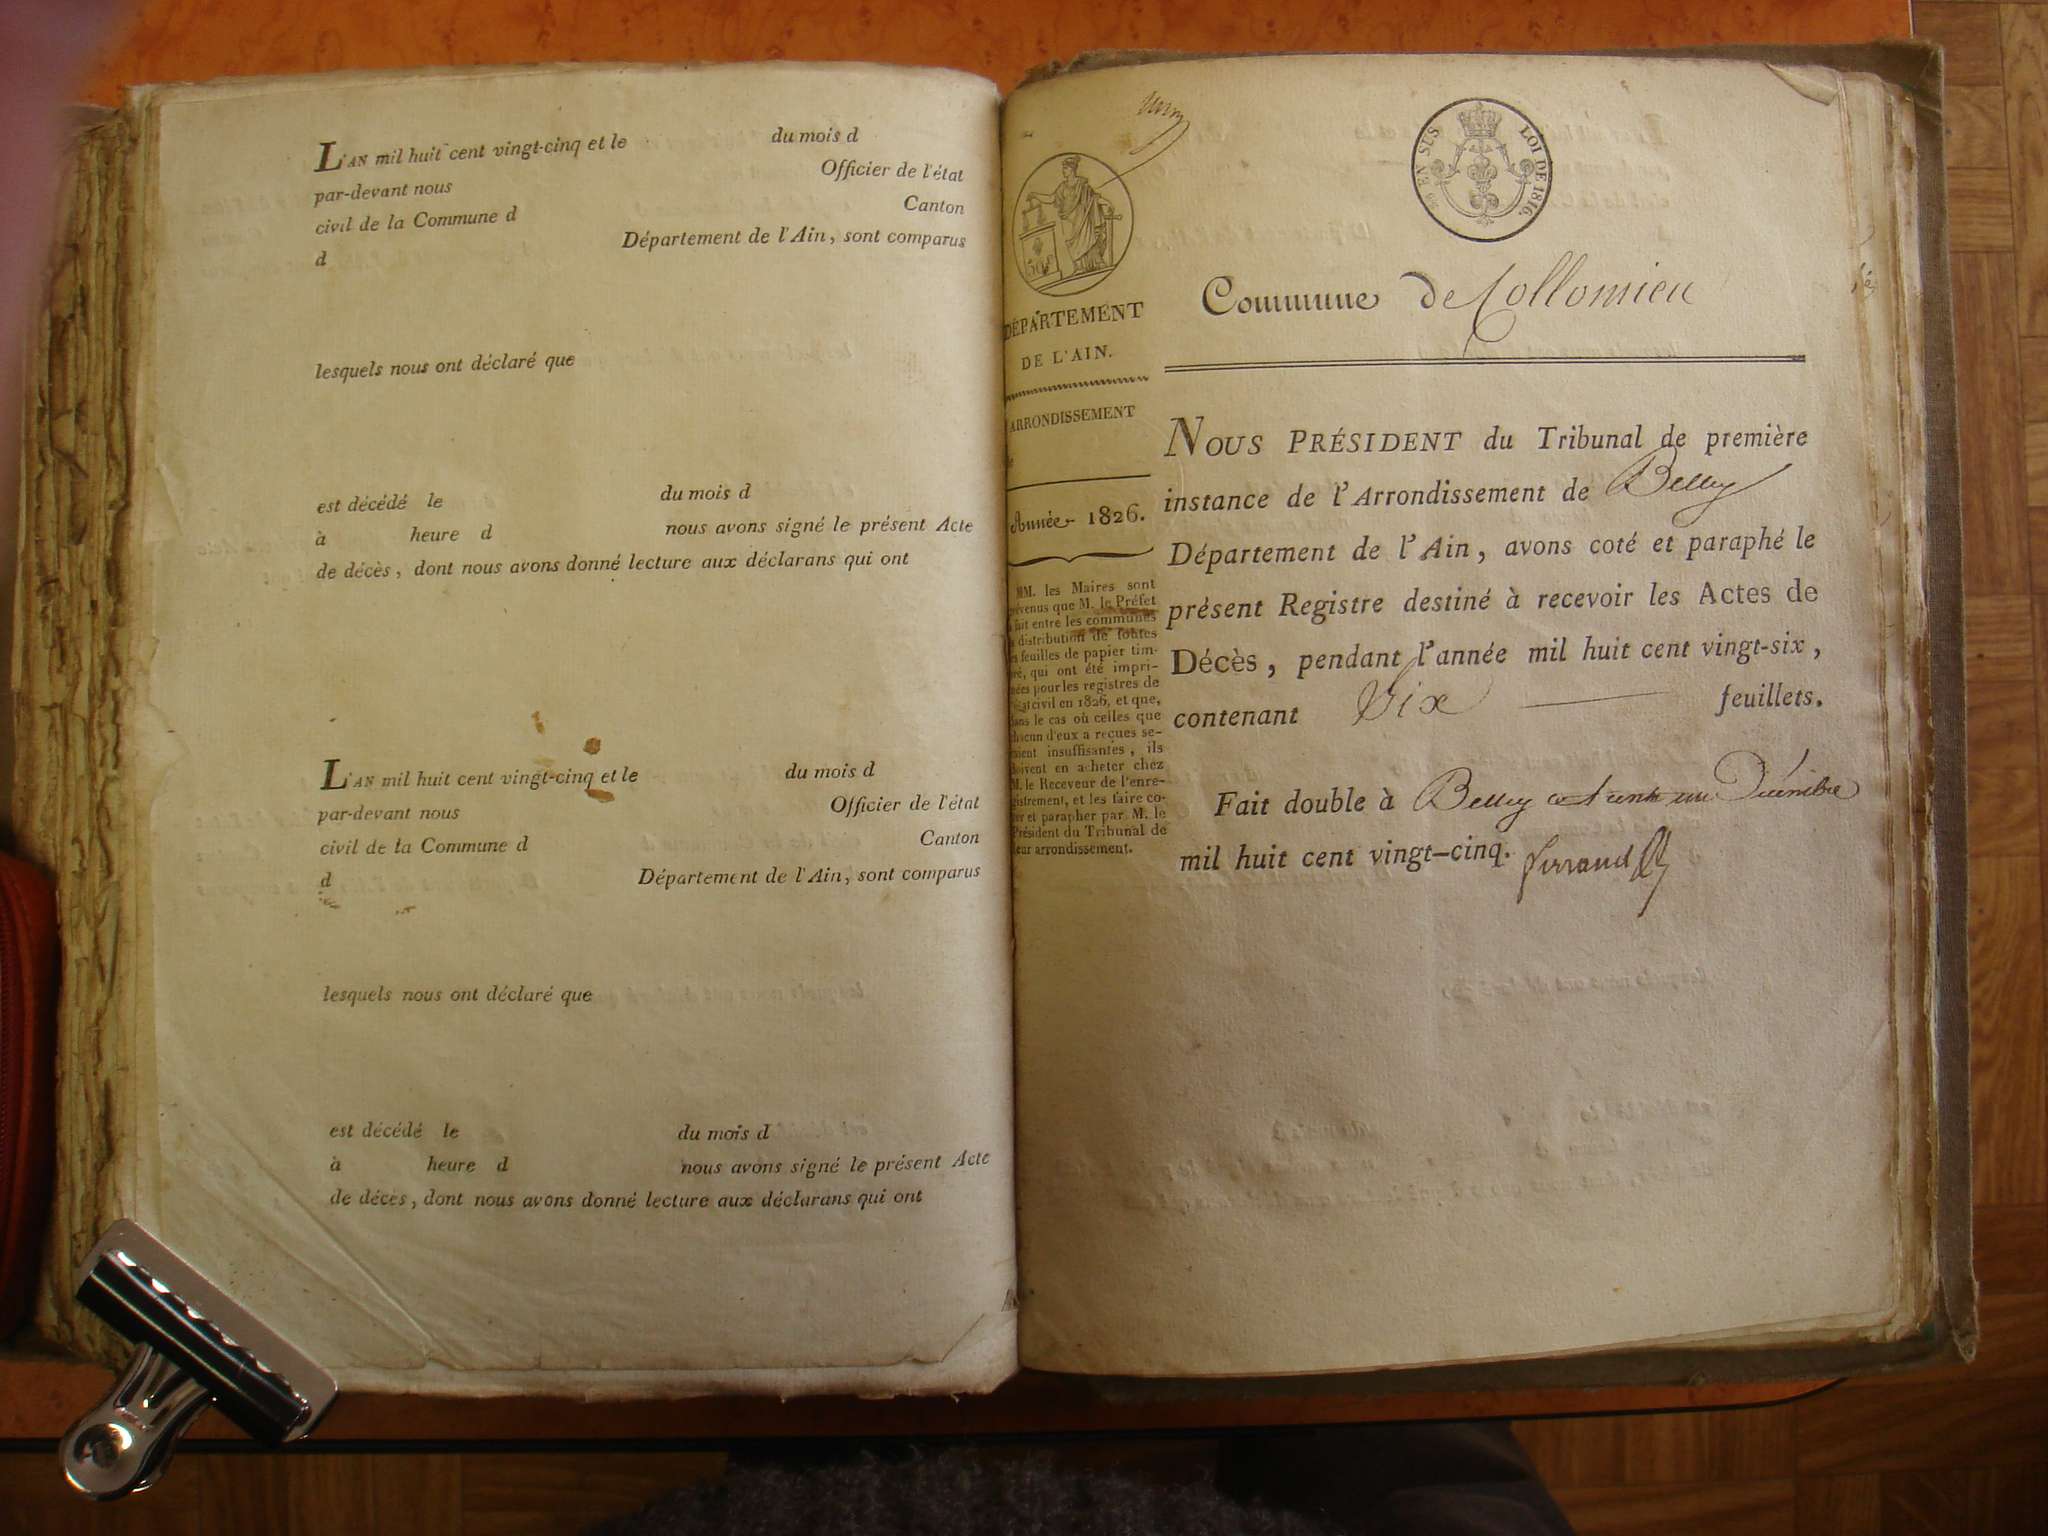 L'AN mil huit cent vingt-cinq et le du mois d
par-devant nous Officier de l'état
civil de la Commune d Canton
d Département de l'Ain, sont comparus
lesquels nous ont déclaré que
est décédé le du mois d
à heure d nous avons signé le présent Acte
de décès, dont nous avons donné lecture aux déclarans qui ont
L'AN mil huit cent vingt-cinq et le du mois d
par-devant nous Officier de l'état
civil de la Commune d Canton
d Département de l'Ain, sont comparus
lesquels nous ont déclaré que
est décédé le du mois d
à heure d nous avons signé le présent Acte
de décès, dont nous avons donné lecture aux déclarans qui ont
EN SUS LOI DE 1816.
50c
DÉPARTEMENT
DE L'AIN.
ARRONDISSEMENT
Année 1826.
MM. les Maires sont
prévenus que M. le Préfet
a fait entre les communes
la distribution de toutes
les feuilles de papier tim-
bré, qui ont été impri-
mées pour les registres de
l'état civil en 1826, et que,
dans le cas où celles que
chacun d'eux a reçues se-
raient insuffisantes, ils
doivent en acheter chez
M. le Receveur de l'enre-
gistrement, et les faire co-
ter et parapher par M. le
Président du Tribunal de
leur arrondissement.
Commune de Collomieu
NOUS PRÉSIDENT du Tribunal de première
instance de l'Arrondissement de Belley
Département de l'Ain, avons coté et paraphé le
présent Registre destiné à recevoir les Actes de
Décès, pendant l'année mil huit cent vingt-six,
contenant Six feuillets.
Fait double à Belley ce trente un Décembre
mil huit cent vingt-cinq.